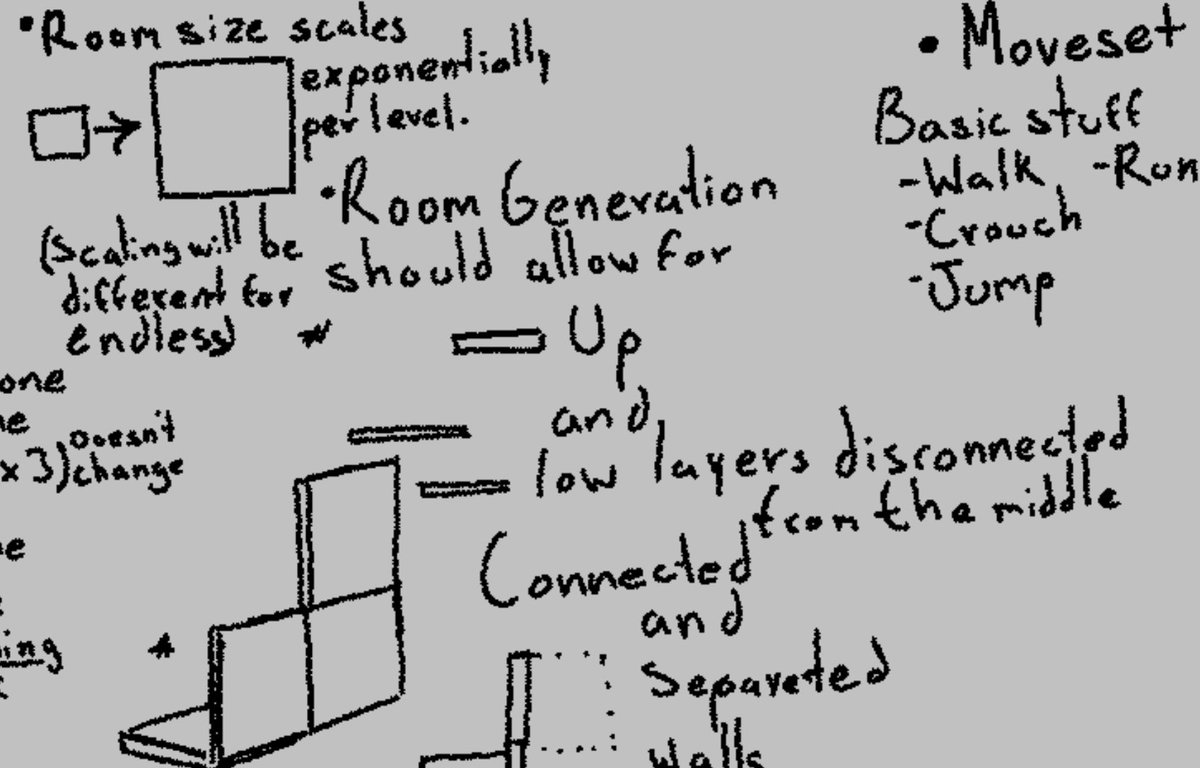 •Room size scales
exponentially
per level.
(Scaling will be
different for
endless)
•Room Generation
should allow for
Up
and
low layers disconnected
from the middle
Connected
and
Separeted
Walls
• Moveset
Basic stuff
-Walk -Run
-Crouch
-Jump
one
x3) Doesn't
change